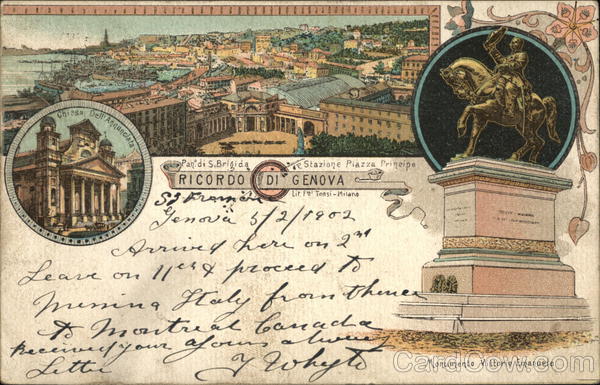 Chiesa Dell'Annunziata
Pan.ª di S. Brigida e Stazione Piazza Principe
RICORDO DI GENOVA
Lit. Tensi - Milano
Genova 5/2/1902
Arrived here on 2nd
Leave on 11th & proceed to
Messina Italy from thence
to Montreal Canada
Received your as always
Letter J Whyte
Monumento Vittorio Emanuele
CardCow.com